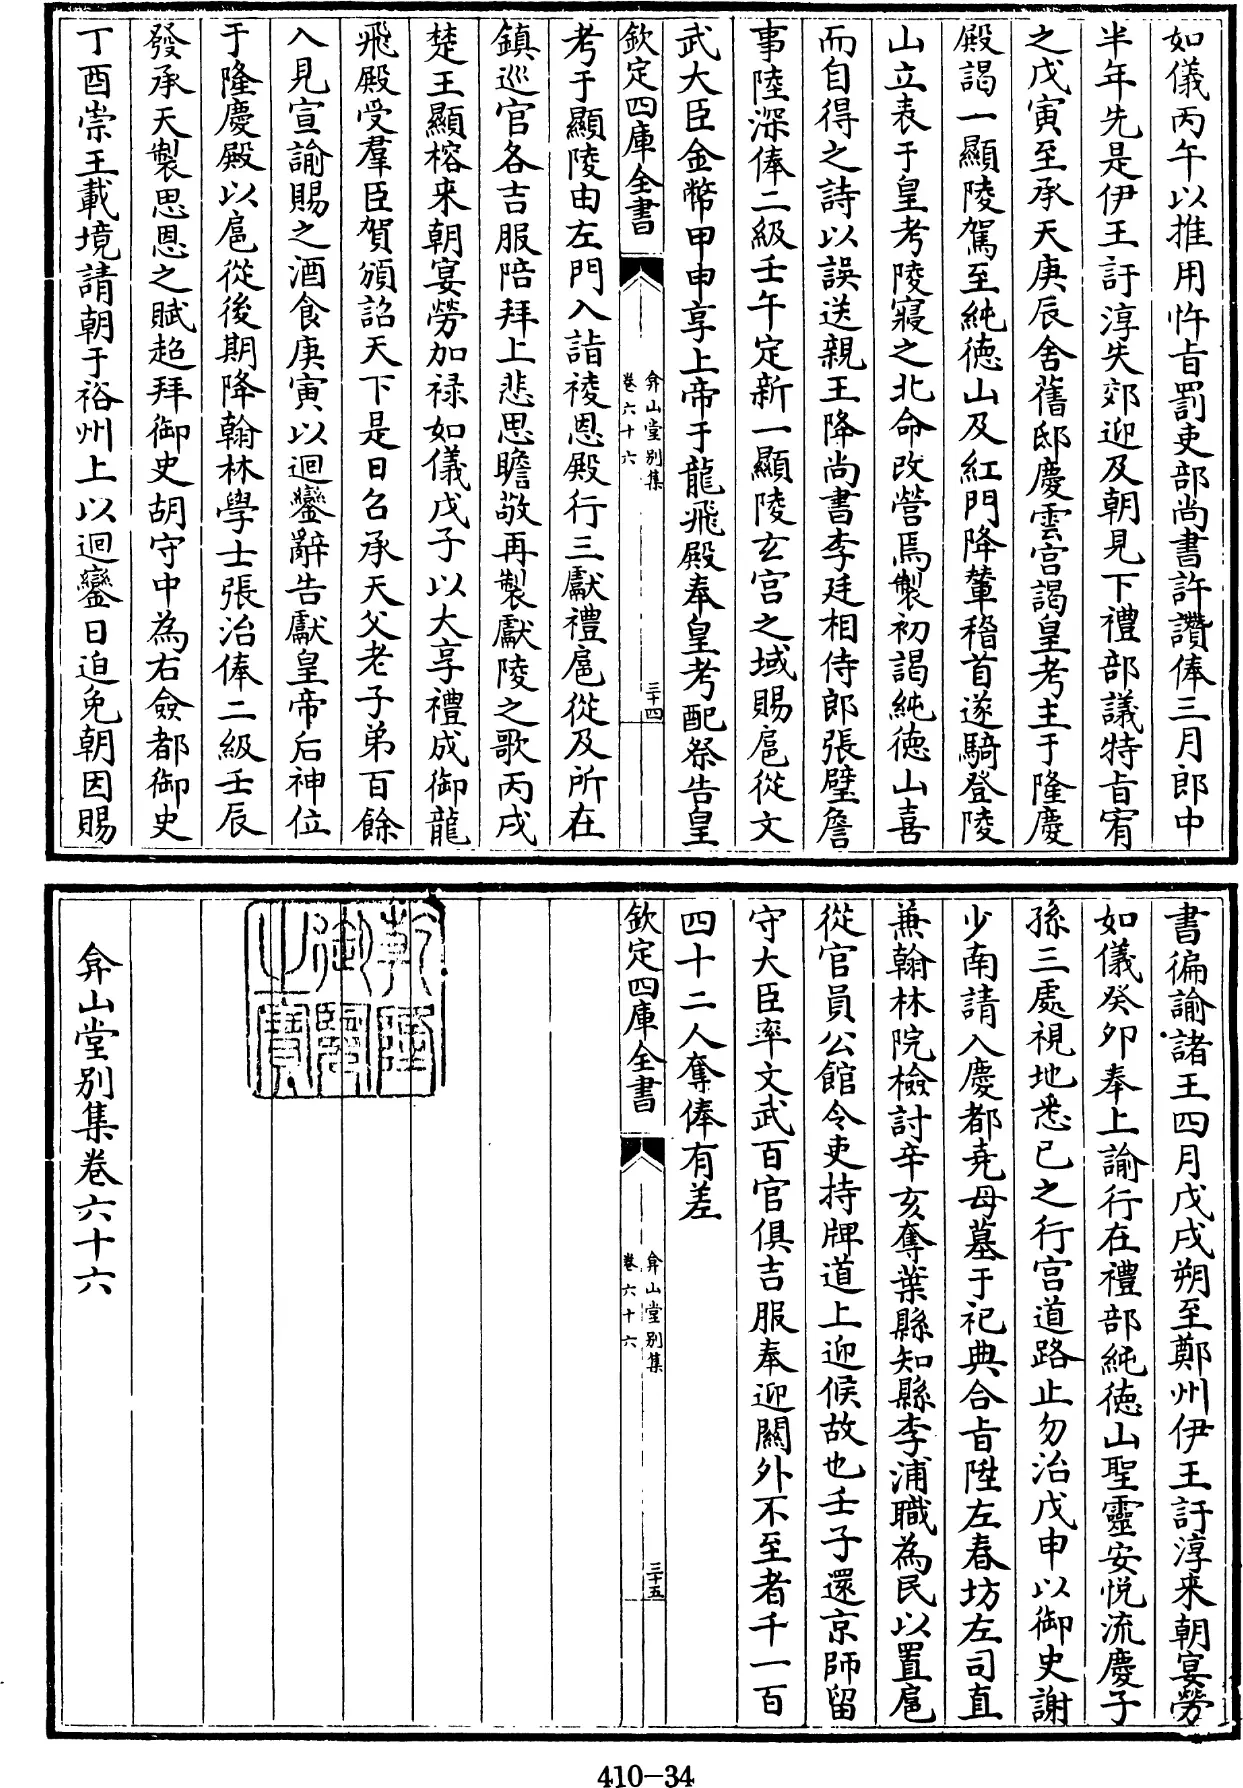 如儀丙午以推用忤旨罰吏部尚書許讚俸三月郎中
半年先是伊王訏淳失郊迎及朝見下禮部議特旨宥
之戊寅至承天庚辰舍舊邸慶雲宮謁皇考主于隆慶
殿謁一顯陵駕至純德山及紅門降輦稽首遂騎登陵
山立表于皇考陵寢之北命改營焉製初謁純德山喜
而自得之詩以誤送親王降尚書李廷相侍郎張璧詹
事陸深俸二級壬午定新一顯陵玄宮之域賜扈從文
武大臣金幣甲申享上帝于龍飛殿奉皇考配祭告皇
欽定四庫全書
弇山堂別集
卷六十六
三十四
考于顯陵由左門入詣祾恩殿行三獻禮扈從及所在
鎮巡官各吉服陪拜上悲思瞻敬再製獻陵之歌丙戌
楚王顯榕来朝宴勞加禄如儀戊子以大享禮成御龍
飛殿受羣臣賀頒詔天下是日召承天父老子弟百餘
入見宣諭賜之酒食庚寅以迴鑾辭告獻皇帝后神位
于隆慶殿以扈從後期降翰林學士張治俸二級壬辰
發承天製思恩之賦超拜御史胡守中為右僉都御史
丁酉崇王載境請朝于裕州上以迴鑾日迫免朝因賜
書徧諭諸王四月戊戌朔至鄭州伊王訏淳来朝宴勞
如儀癸卯奉上諭行在禮部純德山聖靈安悅流慶子
孫三處視地悉已之行宮道路止勿治戊申以御史謝
少南請入慶都堯母墓于祀典合旨陞左春坊左司直
兼翰林院檢討辛亥奪葉縣知縣李浦職為民以置扈
從官員公館令吏持牌道上迎候故也壬子還京師留
守大臣率文武百官俱吉服奉迎關外不至者千一百
四十二人奪俸有差
欽定四庫全書
弇山堂別集
卷六十六
三十五
乾隆御覽之寶
弇山堂別集卷六十六
410-34